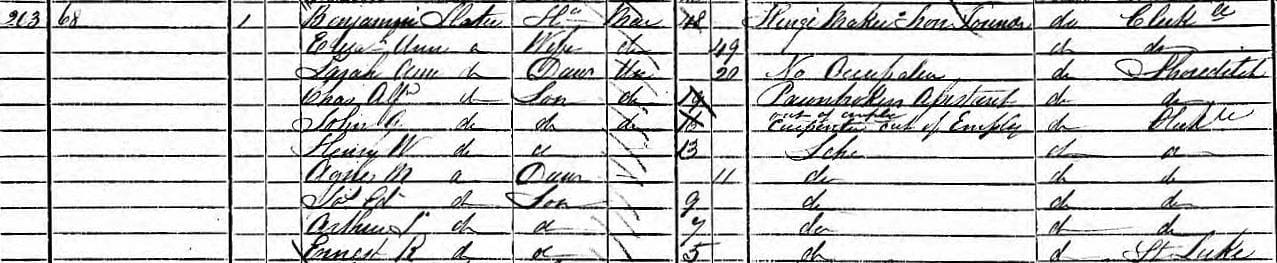 203 68 1 Benjamin Slater Hd Mar 48 Hinge Maker Iron Founder do Clerk ll
Eliza Ann do Wife do 49 do do
Sarah Ann do Daur Un 20 No Occupation do Shoreditch
Chas Alfd do Son do 19 Pawnbrokers Assistant do do
John G do do do Carpenter out of Employ do Clerk ll
Henry W do do 13 Scho do do
Agnes M do Daur 11 do do do
Ed do Son 9 do do do
Arthur S do do 7 do do do
Ernest R do do 5 do do St Luke